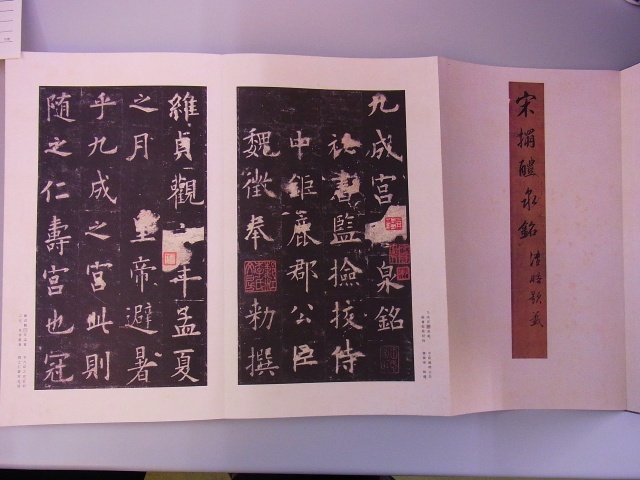 宋搨醴泉銘
九成宮 泉銘
秘書監撿挍侍
中鉅鹿郡公臣
魏徵奉 勅撰
維貞觀 年孟夏
之月 皇帝避暑
乎九成之宮此則
随之仁壽宮也冠